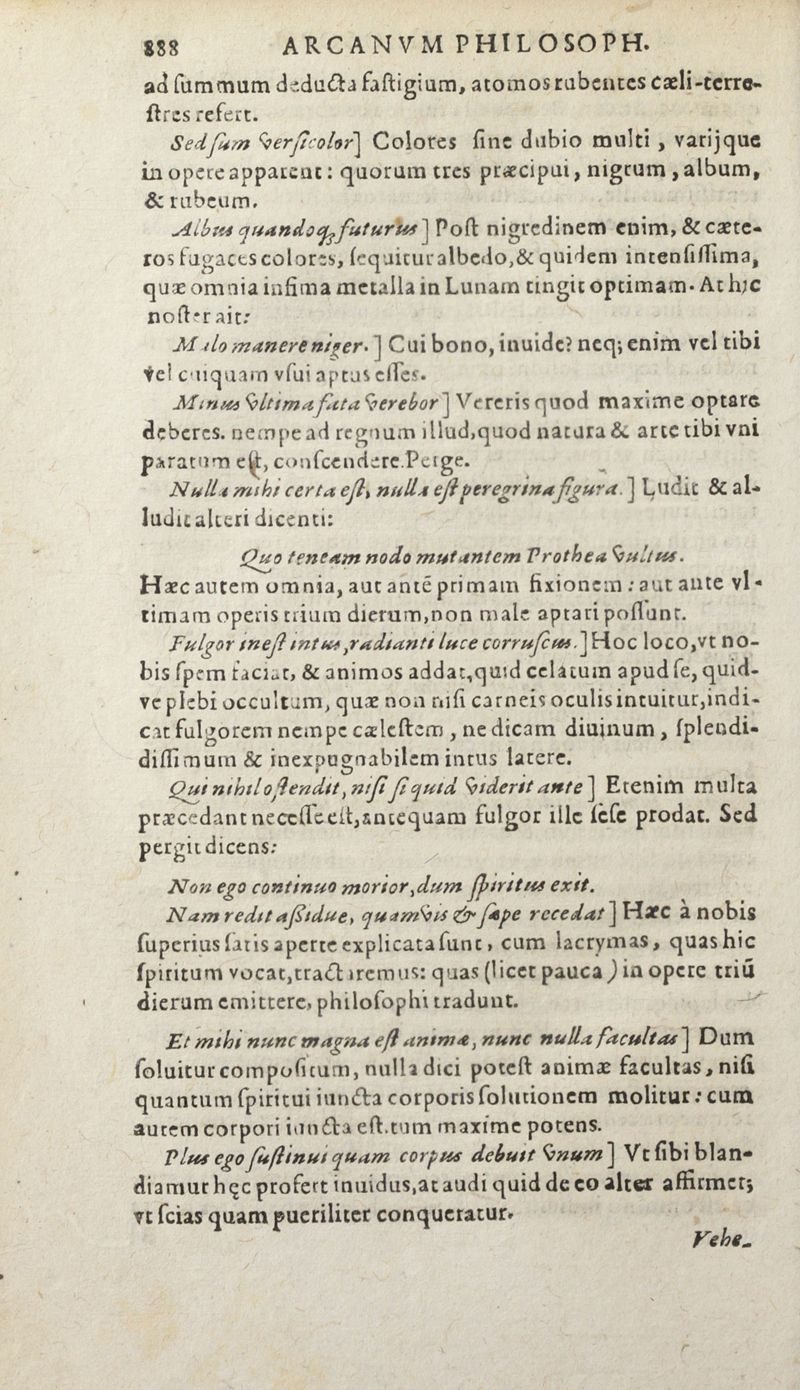 888 ARCANVM PHILOSOPH.
ad ſummum deducta faſtigium, atomos rubentes cæli-terre-
ſtres refert.
Sed ſum verſicolor] Colores ſine dubio multi, varijque
in opere apparent: quorum tres præcipui, nigrum, album,
& rubeum.
Albus quandoq; futurus] Poſt nigredinem enim, & cæte-
ros fugaces colores, ſequitur albedo, & quidem intenſiſſima,
quæ omnia infima metalla in Lunam tingit optimam. At hîc
noſter ait:
Malo manere niger.] Cui bono, inuide? neq; enim vel tibi
vel cuiquam vſui aptus eſſes.
Minus vltima fata verebor] Vereris quod maxime optare
deberes. nempe ad regnum illud, quod natura & arte tibi vni
paratum eſt, conſcendere. Perge.
Nulla mihi certa eſt, nulla eſt peregrina figura.] Ludit & al-
ludit alteri dicenti:
Quo teneam nodo mutantem Prothea vultus.
Hæc autem omnia, aut anté primam fixionem: aut ante vl-
timam operis trium dierum, non male aptari poſſunt.
Fulgor ineſt intus, radianti luce corruſcus.] Hoc loco, vt no-
bis ſpem faciat, & animos addat, quid celatum apud ſe, quid-
ve plebi occultum, quæ non niſi carneis oculis intuitur, indi-
cat fulgorem nempe cæleſtem, ne dicam diuinum, ſplendi-
diſſimum & inexpugnabilem intus latere.
Qui nihil oſtendit, niſi ſi quid viderit ante] Etenim multa
præcedant neceſſe eſt, antequam fulgor ille ſeſe prodat. Sed
pergit dicens:
Non ego continuo morior, dum ſpiritus exit.
Nam redit aſsidue, quamvis & ſæpe recedat] Hæc à nobis
ſuperius ſatis aperte explicata ſunt, cum lacrymas, quas hic
ſpiritum vocat, tractaremus: quas (licet pauca) in opere triū
dierum emittere, philoſophi tradunt.
Et mihi nunc magna eſt animæ, nunc nulla facultas] Dum
ſoluitur compoſitum, nulla dici poteſt animæ facultas, niſi
quantum ſpiritui iuncta corporis ſolutionem molitur: cum
autem corpori iuncta eſt. tum maxime potens.
Plus ego ſuſtinui quam corpus debuit vnum] Vt ſibi blan-
diamur hęc profert inuidus, at audi quid de eo alter affirmet;
vt ſcias quam pueriliter conqueratur.
Vehe-